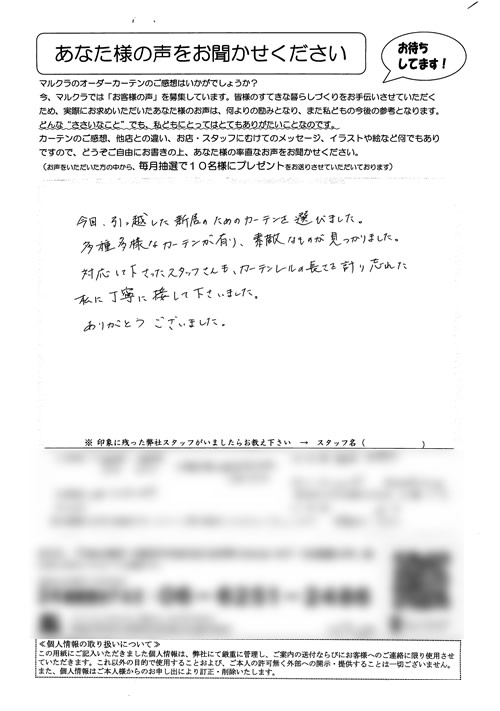 あなた様の声をお聞かせください
お待ち
してます！
マルクラのオーダーカーテンのご感想はいかがでしょうか？
今、マルクラでは「お客様の声」を募集しています。皆様のすてきな暮らしづくりをお手伝いさせていただく
ため、実際にお求めいただいたあなた様のお声は、何よりの励みとなり、また私どもの今後の参考となります。
どんな“ささいなこと”でも、私どもにとってはとてもありがたいことなのです。
カーテンのご感想、他店との違い、お店・スタッフにむけてのメッセージ、イラストや絵など何でもあり
ですので、どうぞご自由にお書きの上、あなた様の率直なお声をお聞かせください。
（お声をいただいた方の中から、毎月抽選で１０名様にプレゼントをお送りさせていただいております）
今日、引っ越した新居のためのカーテンを選びました。
多種多様なカーテンが有り、素敵なものが見つかりました。
対応して下さったスタッフさんも、カーテンレールの長さを計り忘れた
私に丁寧に接して下さいました。
ありがとうございました。
※ 印象に残った弊社スタッフがいましたらお教え下さい → スタッフ名（ ）
06-6251-2486
≪個人情報の取り扱いについて≫
この用紙にご記入いただきました個人情報は、弊社にて厳重に管理し、ご案内の送付ならびにお客様へのご連絡に限り使用させ
ていただきます。これ以外の目的で使用することおよび、ご本人の許可無く外部への開示・提供することは一切ございません。
また、個人情報はご本人様からのお申し出により訂正・削除いたします。